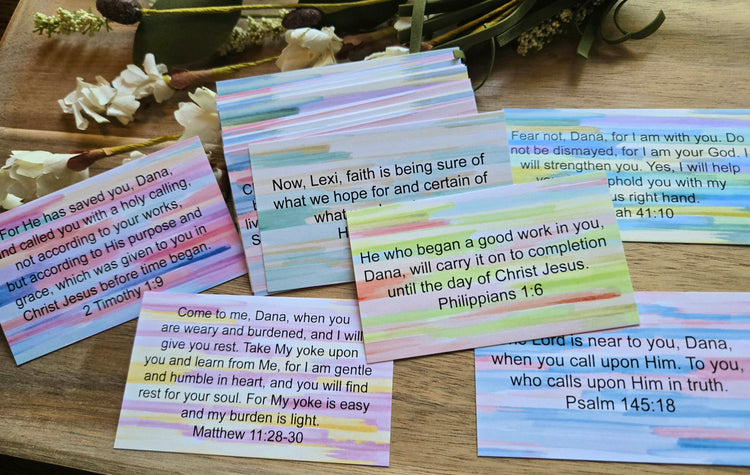 Now, Lexi, faith is being sure of
what we hope for and certain of
what
Fear not, Dana, for I am with you. Do
not be dismayed, for I am your God. I
will strengthen you. Yes, I will help
uphold you with my
right hand.
41:10
For He has saved you, Dana,
and called you with a holy calling,
not according to your works,
but according to His purpose and
grace, which was given to you in
Christ Jesus before time began.
2 Timothy 1:9
He who began a good work in you,
Dana, will carry it on to completion
until the day of Christ Jesus.
Philippians 1:6
Come to me, Dana, when you
are weary and burdened, and I will
give you rest. Take My yoke upon
you and learn from Me, for I am gentle
and humble in heart, and you will find
rest for your soul. For My yoke is easy
and my burden is light.
Matthew 11:28-30
Lord is near to you, Dana,
when you call upon Him. To you,
who calls upon Him in truth.
Psalm 145:18